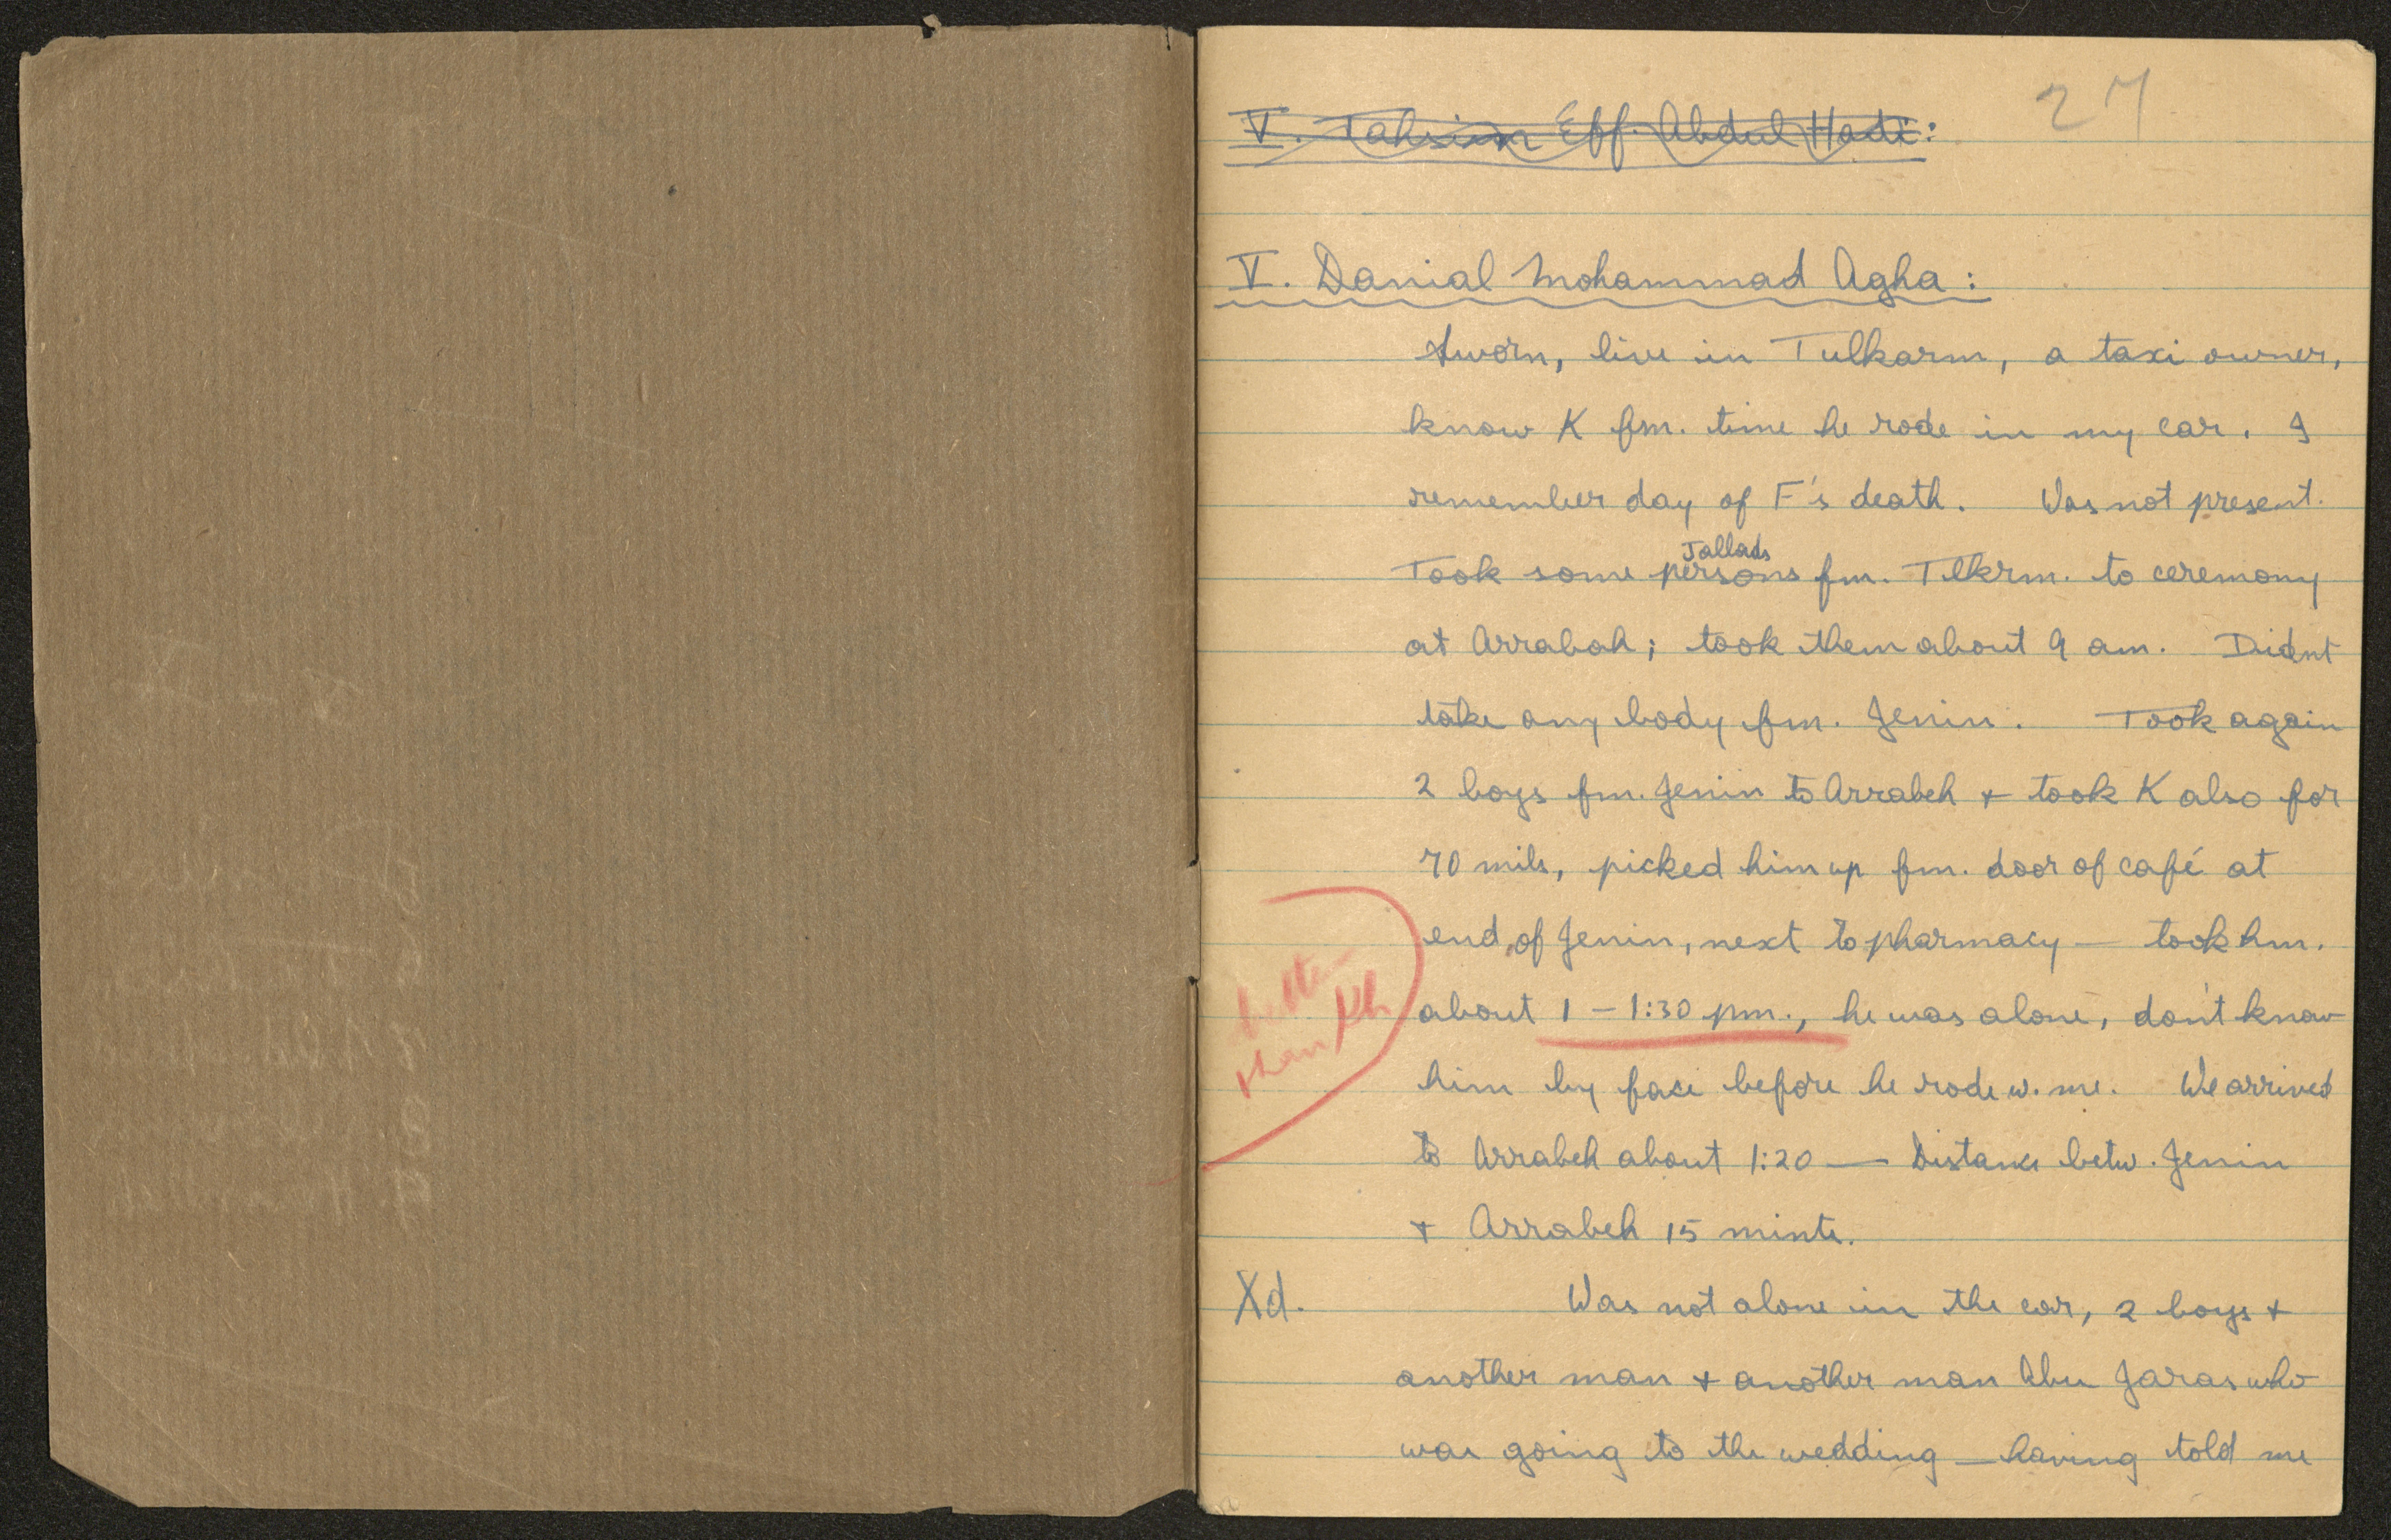 27
V. Tahsim Eff. Abdul Hadi:
V. Danial Mohammad Agha:
Sworn, live in Tulkarm, a taxi owner,
know K fm. time he rode in my car. I
remember day of F's death. Was not present.
Jallads
Took some persons fm. Tlkrm. to ceremony
at Arrabah; took them about 9 am. Didnt
take any body fm. Jenin. Took again
2 boys fm. Jenin to Arrabeh + took K also for
70 mils, picked him up fm. door of café at
end, of Jenin, next to pharmacy — took hm.
about 1 – 1:30 pm., he was alone, don't know
him by face before he rode w. me. We arrived
to Arrabeh about 1:20 — Distance betw. Jenin
+ Arrabeh 15 mints.
better
than Kh
Xd. Was not alone in the car, 2 boys +
another man + another man Abu Jaras who
was going to the wedding — having told me